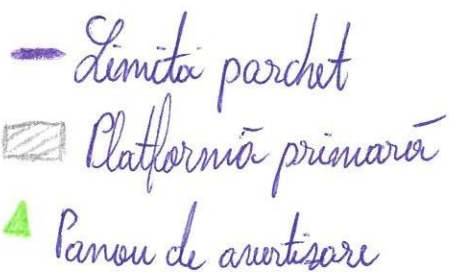 Limită parchet
Platformă primară
Panou de avertizare